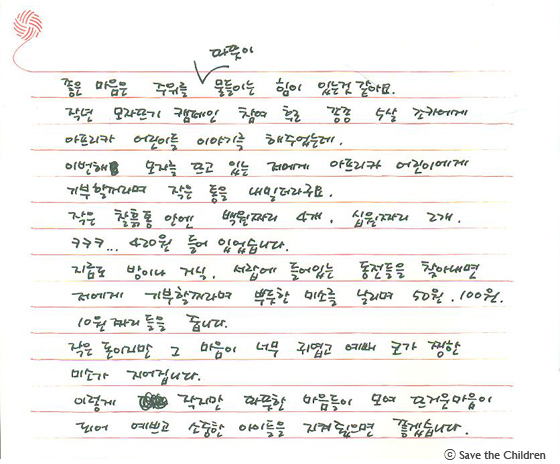 따뜻이
좋은 마음은 주위를 물들이는 힘이 있는것 같아요.
작년 모자뜨기 캠페인 참여 후로 종종 수살 조카에게
아프리카 어린이들 이야기를 해주었는데.
이번해 모자를 뜨고 있는 저에게 아프리카 어린이에게
기부할꺼라며 작은 통을 내밀더라구요.
작은 찰흙통 안엔 백원짜리 4개, 십원짜리 2개.
ㅋㅋㅋ... 420원 들어 있었습니다.
지금도 방이나 거실, 서랍에 들어있는 동전들을 찾아내면
저에게 기부할꺼라며 뿌듯한 미소를 날리며 50원, 100원,
10원 짜리 들을 줍니다.
작은 돈이지만 그 마음이 너무 귀엽고 예뻐 코가 찡한
미소가 지어집니다.
이렇게 작지만 따뜻한 마음들이 모여 뜨거운마음이
되어 예쁘고 소중한 아이들을 지켜줬으면 좋겠습니다.
ⓒ Save the Children